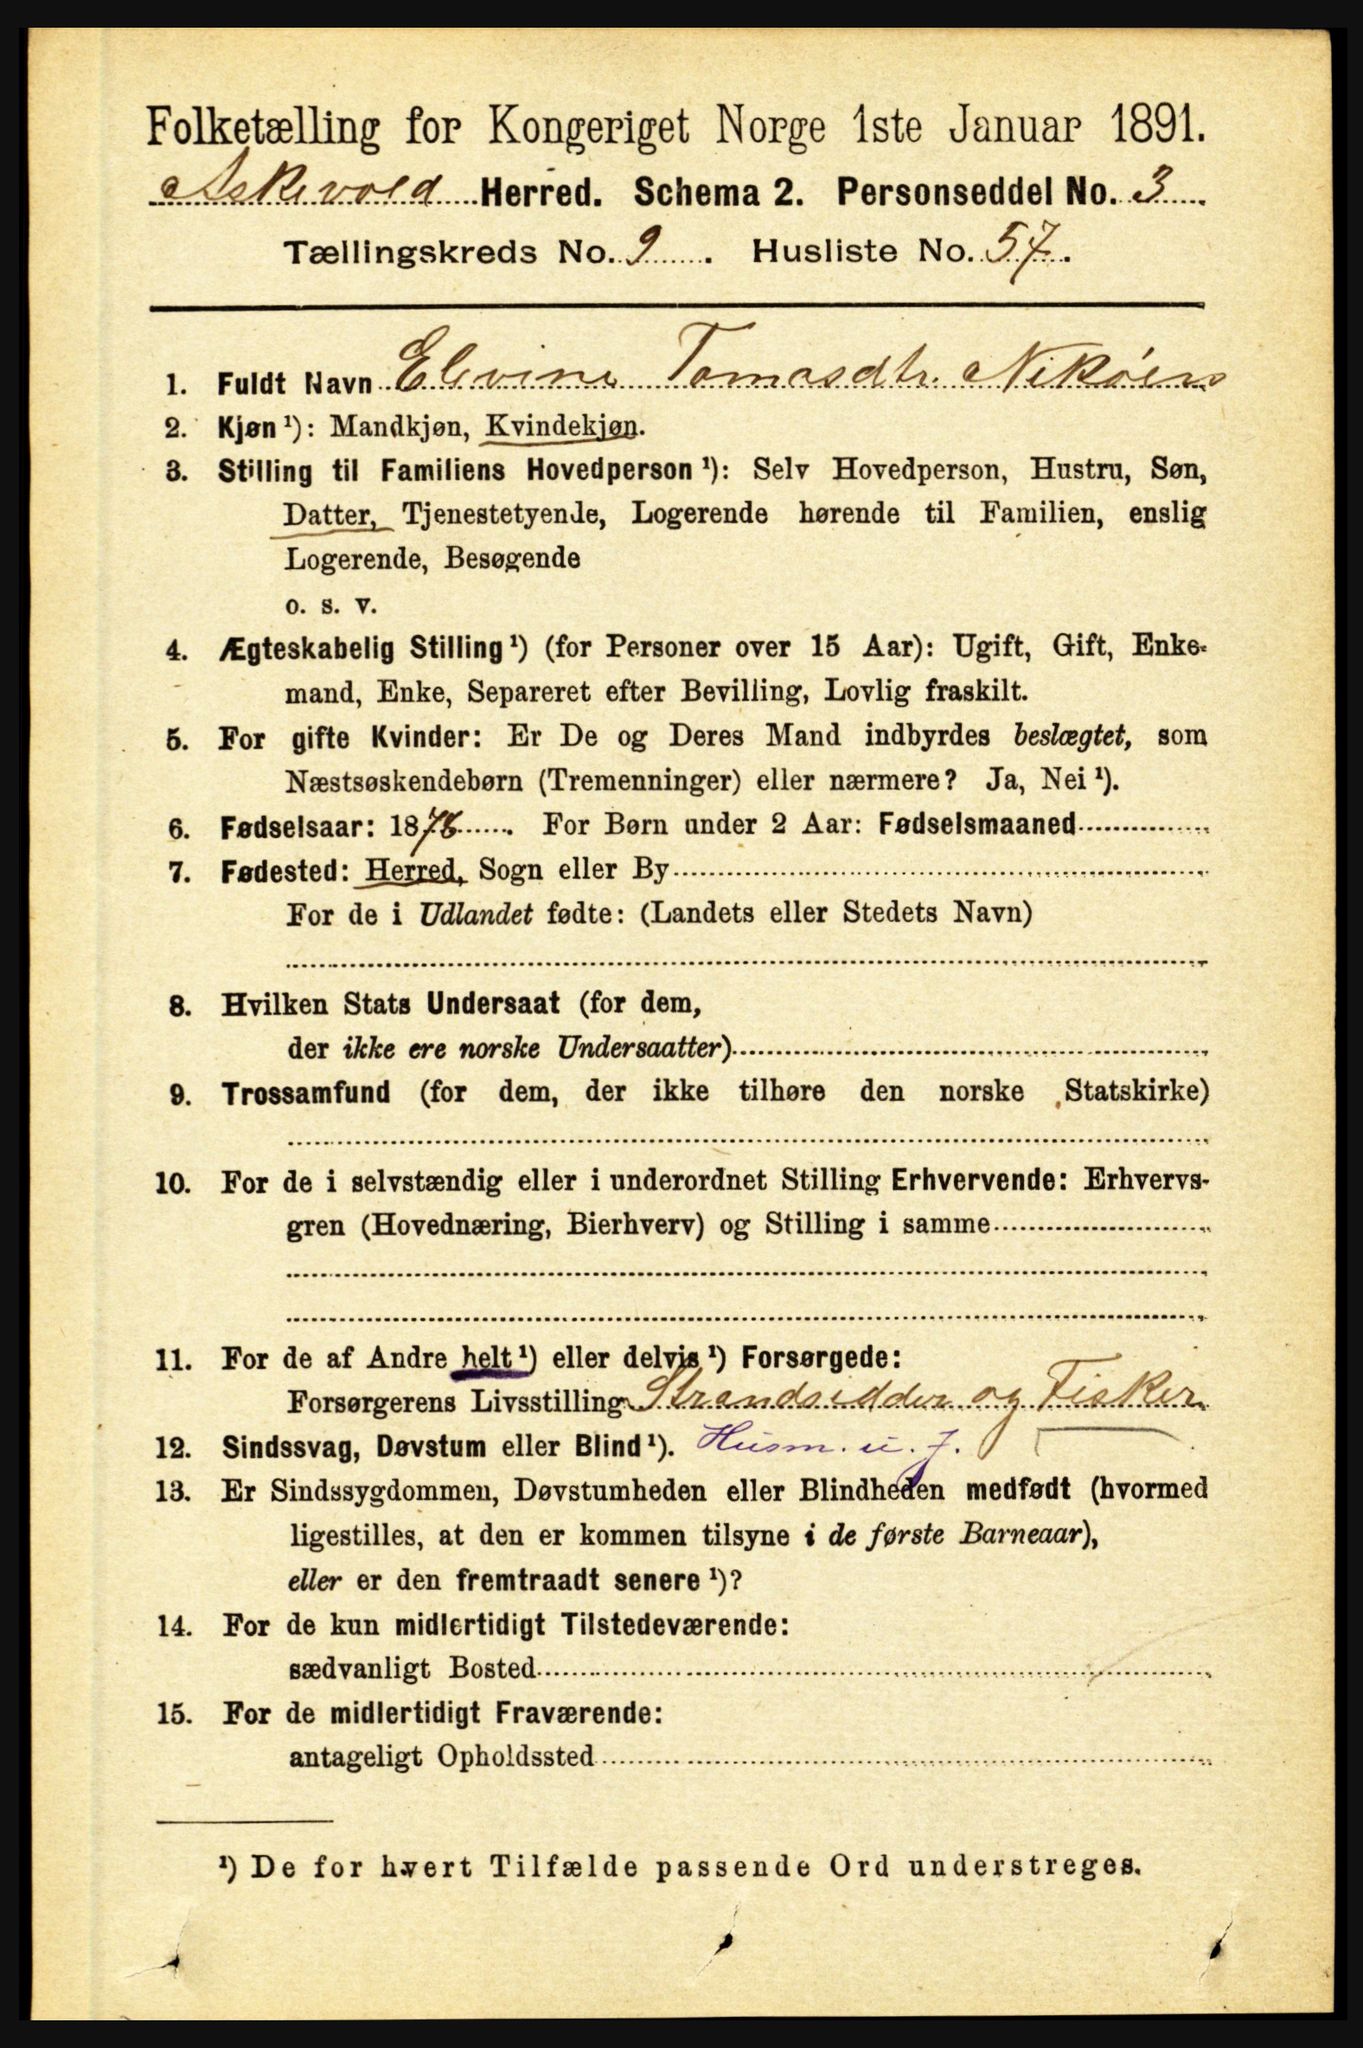 Folketælling for Kongeriget Norge 1ste Januar 1891.
Askevold Herred. Schema 2. Personseddel No. 3
Tællingskreds No. 9. Husliste No. 57.
1. Fuldt Navn Elvine Tomasdtr. Nikøen
2. Kjøn ¹): Mandkjøn, Kvindekjøn.
3. Stilling til Familiens Hovedperson ¹): Selv Hovedperson, Hustru, Søn,
Datter, Tjenestetyende, Logerende hørende til Familien, enslig
Logerende, Besøgende
o. s. v.
4. Ægteskabelig Stilling ¹) (for Personer over 15 Aar): Ugift, Gift, Enke-
mand, Enke, Separeret efter Bevilling, Lovlig fraskilt.
5. For gifte Kvinder: Er De og Deres Mand indbyrdes beslægtet, som
Næstsøskendebørn (Tremenninger) eller nærmere? Ja, Nei ¹).
6. Fødselsaar: 1876. For Børn under 2 Aar: Fødselsmaaned
7. Fødested: Herred, Sogn eller By
For de i Udlandet fødte: (Landets eller Stedets Navn)
8. Hvilken Stats Undersaat (for dem,
der ikke ere norske Undersaatter)
9. Trossamfund (for dem, der ikke tilhøre den norske Statskirke)
10. For de i selvstændig eller i underordnet Stilling Erhvervende: Erhvervs-
gren (Hovednæring, Bierhverv) og Stilling i samme
11. For de af Andre helt ¹) eller delvis ¹) Forsørgede:
Forsørgerens Livsstilling Strandsidder og Fisker
12. Sindssvag, Døvstum eller Blind ¹). Husm. u. J.
13. Er Sindssygdommen, Døvstumheden eller Blindheden medfødt (hvormed
ligestilles, at den er kommen tilsyne i de første Barneaar),
eller er den fremtraadt senere ¹)?
14. For de kun midlertidigt Tilstedeværende:
sædvanligt Bosted
15. For de midlertidigt Fraværende:
antageligt Opholdssted
¹) De for hvert Tilfælde passende Ord understreges.